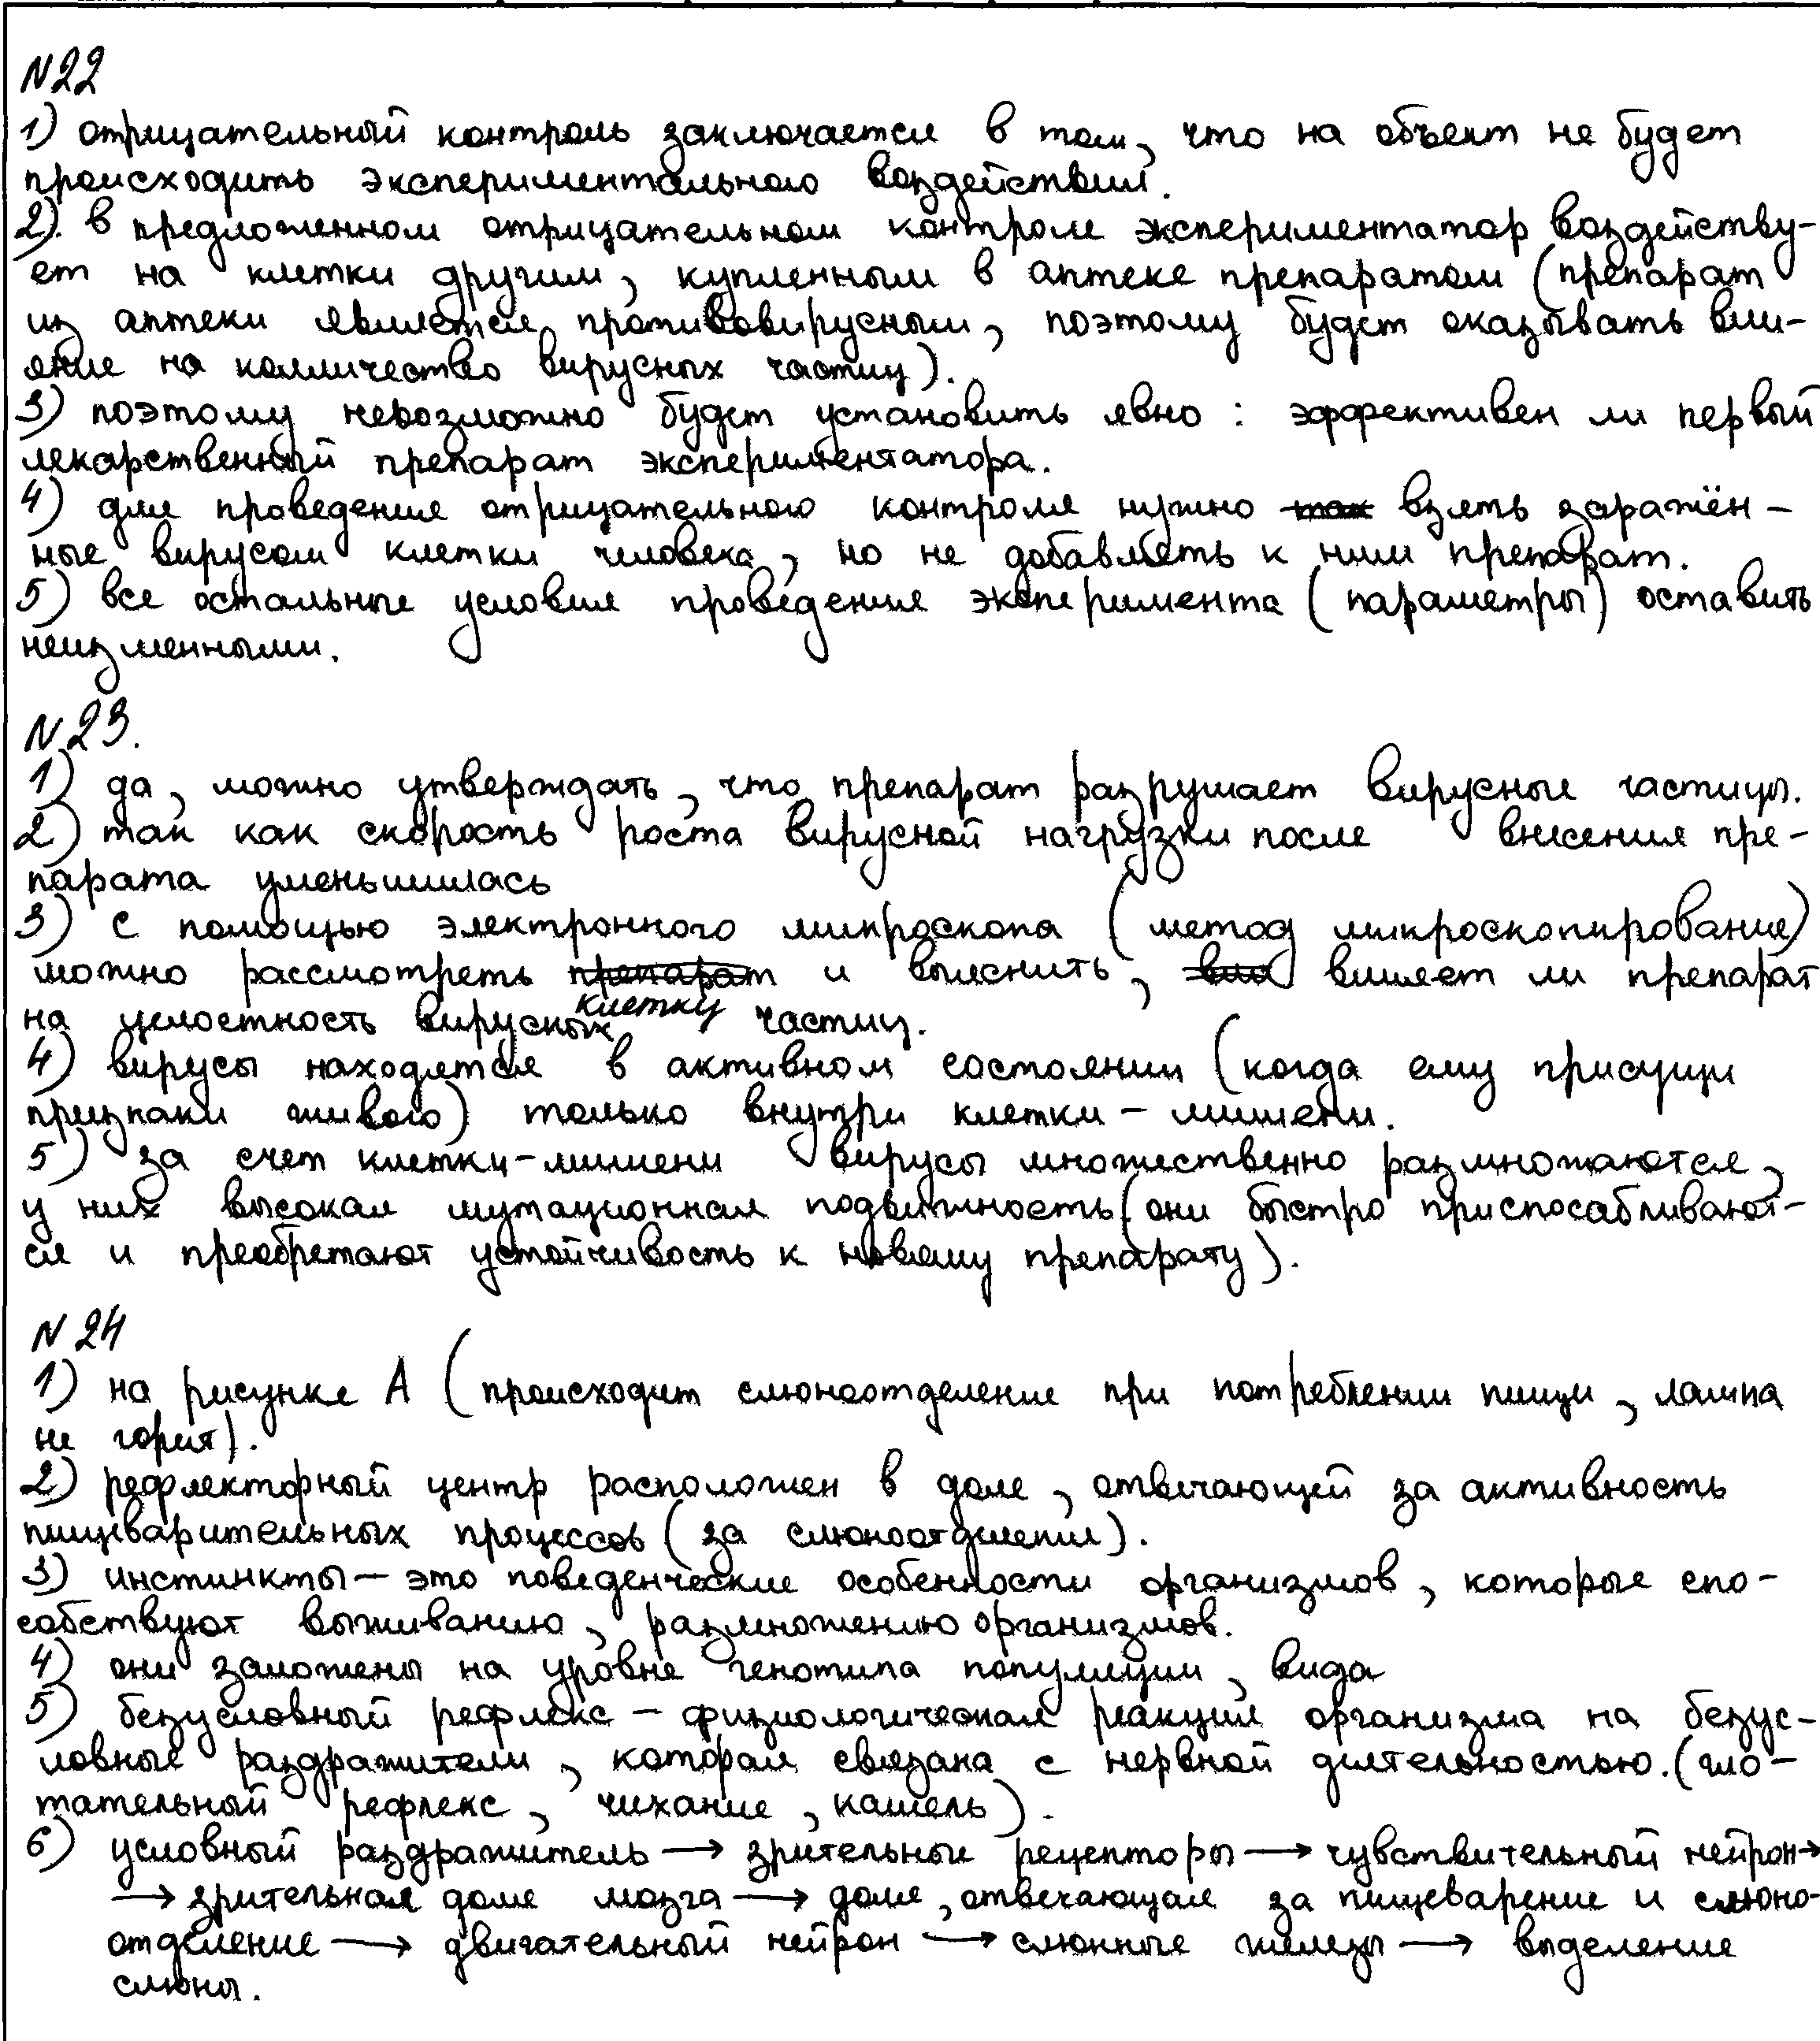 N22
1) отрицательный контроль заключается в том, что на объект не будет
происходить экспериментального воздействия.
2). в предложенном отрицательном контроле экспериментатор воздейству-
ет на клетки другим, купленным в аптеке препаратом (препарат
из аптеки является противовирусным, поэтому будет оказывать вли-
яние на колличество вирусных частиц).
3) поэтому невозможно будет установить явно: эффективен ли первый
лекарственный препарат экспериментатора.
4) для проведения отрицательного контроля нужно так взять заражён-
ные вирусом клетки человека, но не добавлять к ним препарат.
5) все остальные условия проведения эксперимента (параметры) оставить
неизменными.
N23.
1) да, можно утверждать, что препарат разрушает вирусные частицы.
2) так как скорость роста вирусной нагрузки после внесения пре-
парата уменьшилась
3) с помощью электронного микроскопа (метод микроскопирование)
можно рассмотреть препарат и выяснить, влияет ли препарат
клетку
на целостность вирусных частиц.
4) вирусы находятся в активном состоянии (когда ему присущи
признаки живого) только внутри клетки-мишени.
5) за счет клетки-мишени вирусы множественно размножаются,
у них высокая мутационная подвижность (они быстро приспосабливают-
ся и преобретают устойчивость к новому препарату).
N24
1) на рисунке А (происходит слюноотделение при потреблении пищи, лампа
не горит).
2) рефлекторный центр расположен в доле, отвечающей за активность
пищеварительных процессов (за слюноотделения).
3) инстинкты - это поведенческие особенности организмов, которые спо-
собствуют выживанию, размножению организмов.
4) они заложены на уровне генотипа популяции, вида
5) безусловный рефлекс - физиологическая реакция организма на безус-
ловные раздражители, которая связана с нервной деятельностью. (гло-
тательный рефлекс, чихание, кашель).
6) условный раздражитель → зрительные рецепторы → чувствительный нейрон →
→ зрительная доля мозга → доля, отвечающая за пищеварение и слюно-
отделение → двигательный нейрон → слюнные железы → выделение
слюны.